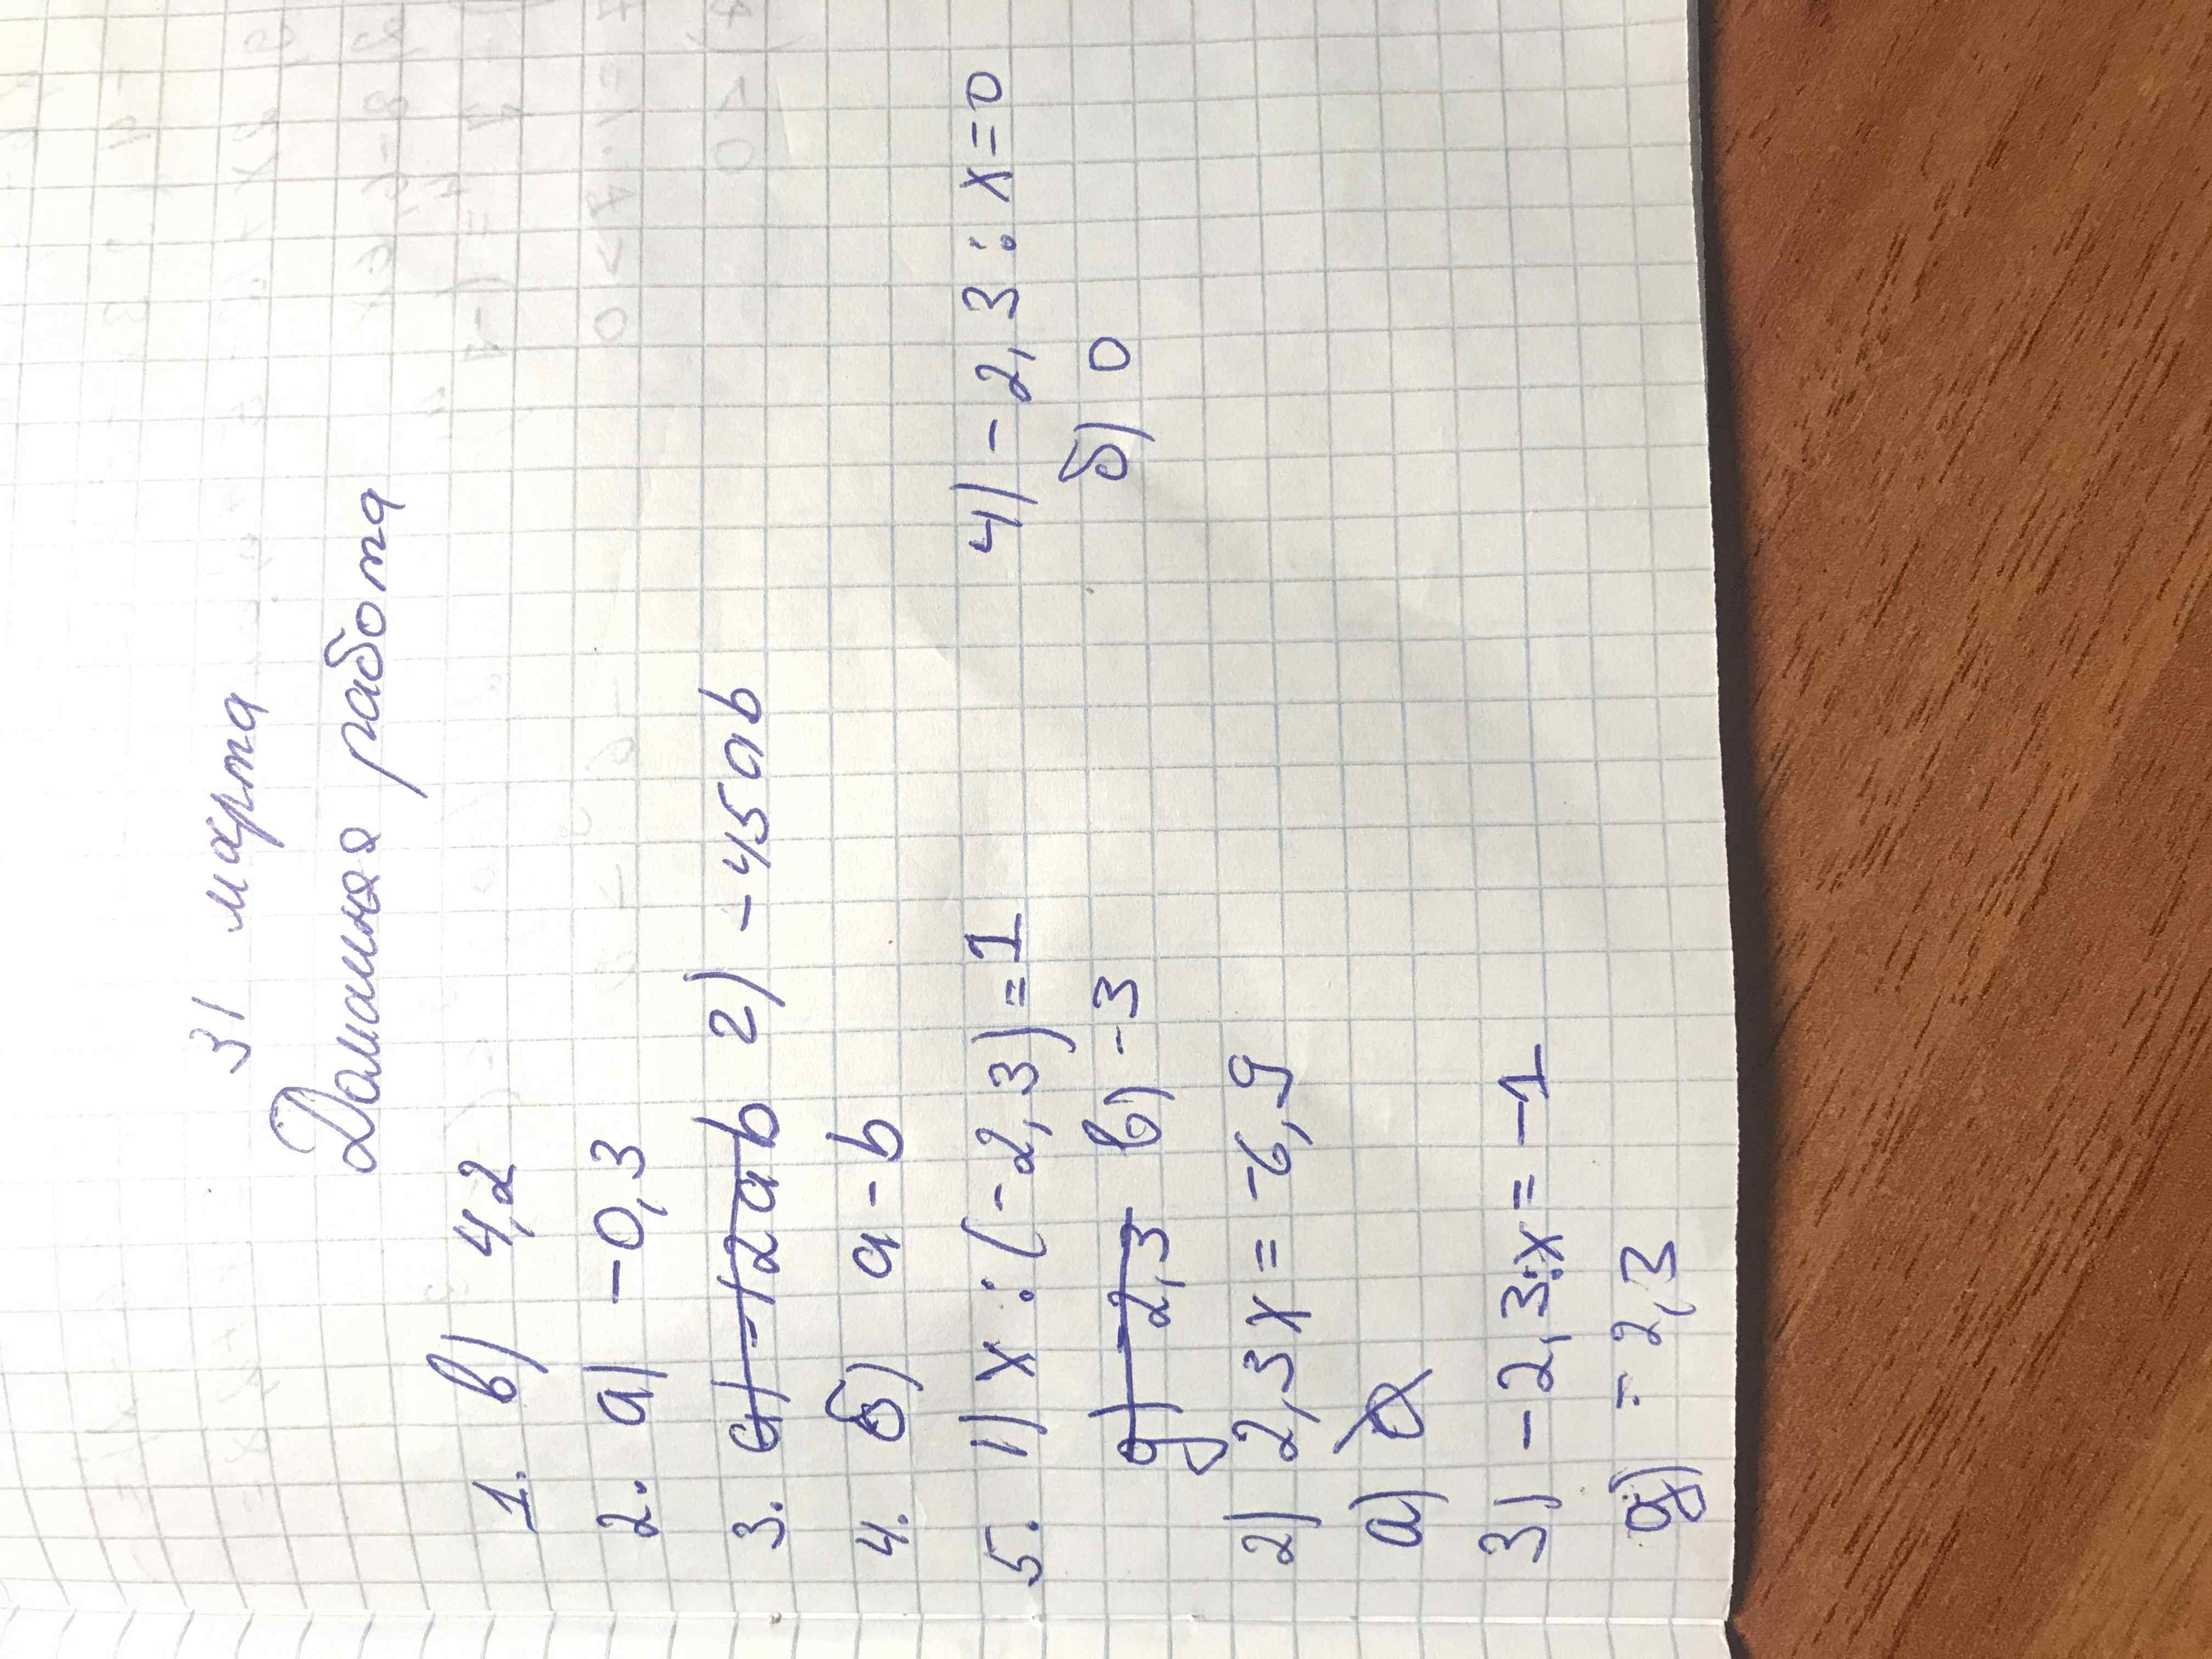 31 марта
Домашняя работа
1. в) 4,2
2. а) -0,3
3. а) -12ab г) -45ab
4. б) a-b
5. 1) x : (-2,3)=1
д) -2,3 в) -3
2) 2,3x = -6,9
а)
3) -2,3:x = -1
д) -2,3
4) -2,3 : x=0
б) 0